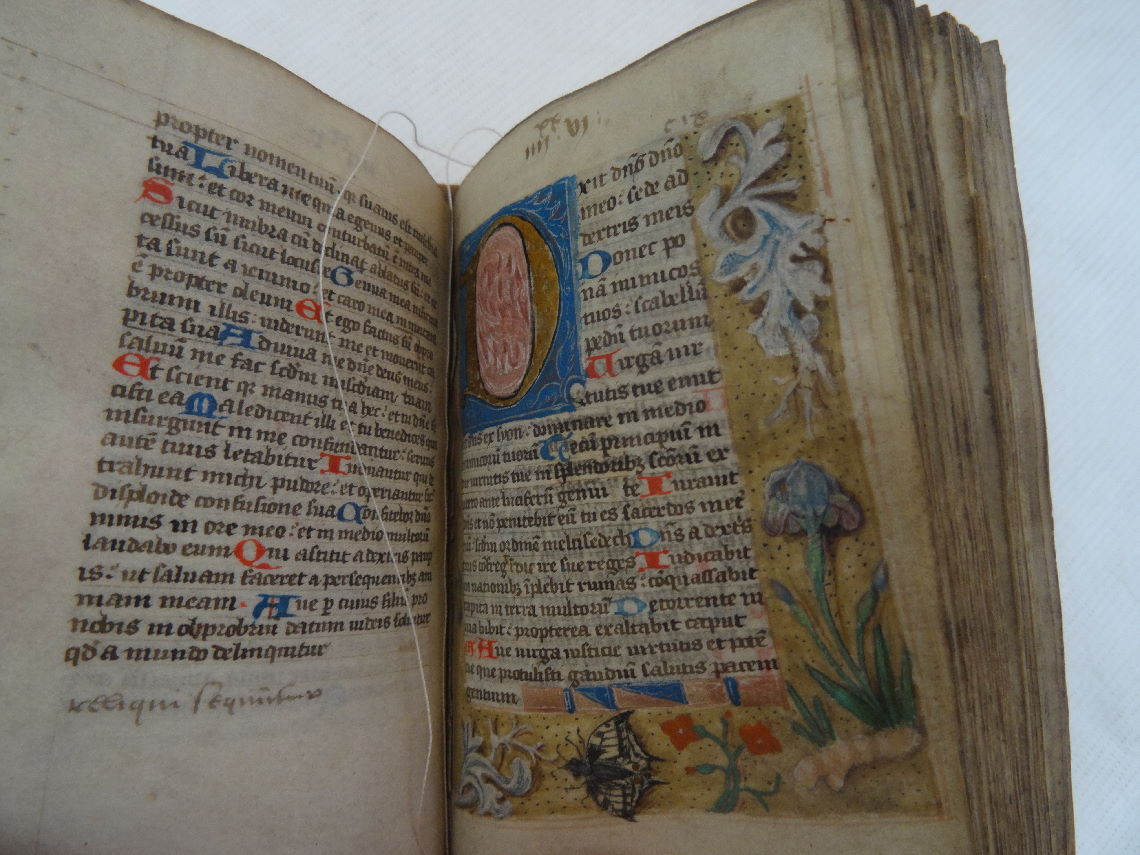 propter nomen tuum qr suauis est
tua Libera me qr a egenus et pauper
sum: et cor meum conturbatū ē intra me
Sicut umbra cū declinat ablatus sū: et
cessus sū sicut locuste Genua mea infirma
ta sunt a ieiunio: et caro mea inmutata
ē propter oleum Et ego factus sū oppro
brium illis: uiderunt me et mouerūt ca
pita sua Adiuua me dn̄e deus meus:
saluū me fac scdm̄ misc̄diam tuam
Et scient qr manus tua hec: et tu dn̄e fe
cisti ea Maledicent illi et tu benedices qui
insurgunt in me confundantur: seruus
autē tuus letabitur Induantur qui de
trahunt michi pudore: et operiantur sic
disploide confusione sua Confitebor dn̄o
nimis in ore meo: et in medio multorū
laudabo eum Qui astitit a dextris paup
is: ut saluam faceret a persequentibꝫ ani
mam meam. Aue p cuius filiū pro
nobis in obprobriū datum uideis soluitur
qd̄ a mundo delinquitur
reliqui sequūtur
xxvi cix
iiii
Dixit dn̄s dn̄o
meo: sede ad
dextris meis
Donec po
nā inimicos
tuos: scabellū
pedū tuorum
Uirgā uir
tutis tue emit
tet dn̄s ex syon: dominare in medio
inimicorū tuorū Tecū principiū in
die uirtutis tue in splendoribꝫ sc̄orū ex
utero ante luciferū genui te Iurauit
dn̄s et nō penitebit eū tu es sacerdos in et
nū: scdm̄ ordinē melchisedech Dn̄s a dextris
tuis cōfregit in die ire sue reges Iudicabit
in nationibꝫ īplebit ruinas: cōquassabit
capita in terra multorū De torrente in
uia bibit: propterea exaltabit caput
Aue uirga iusticie uirtutis et potē
tie que protulisti gaudiū salutis pacem
gentium